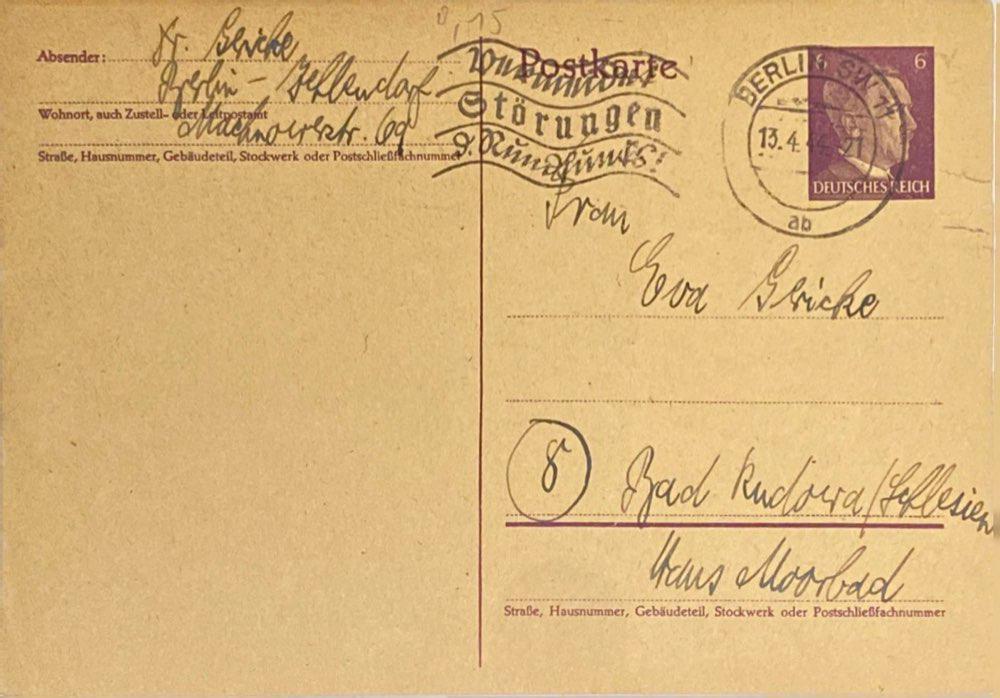 0,15
Absender: Dr. Gericke
Berlin - Zehlendorf
Wohnort, auch Zustell- oder Leitpostamt
Machnowerstr. 69
Straße, Hausnummer, Gebäudeteil, Stockwerk oder Postschließfachnummer
Postkarte
Vermeidet
Störungen
d. Rundfunks!
BERLIN SW 11
13.4.44.-21
ab
6 6
DEUTSCHES REICH
Frau
Eva Gericke
8
Bad Kudowa/Schlesien
Haus Moorbad
Straße, Hausnummer, Gebäudeteil, Stockwerk oder Postschließfachnummer